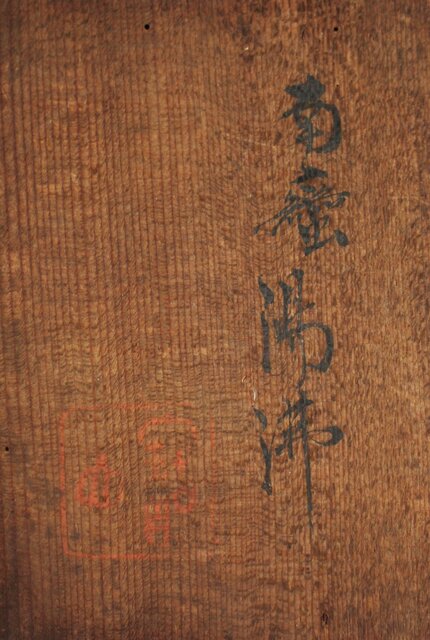 南蛮湯沸